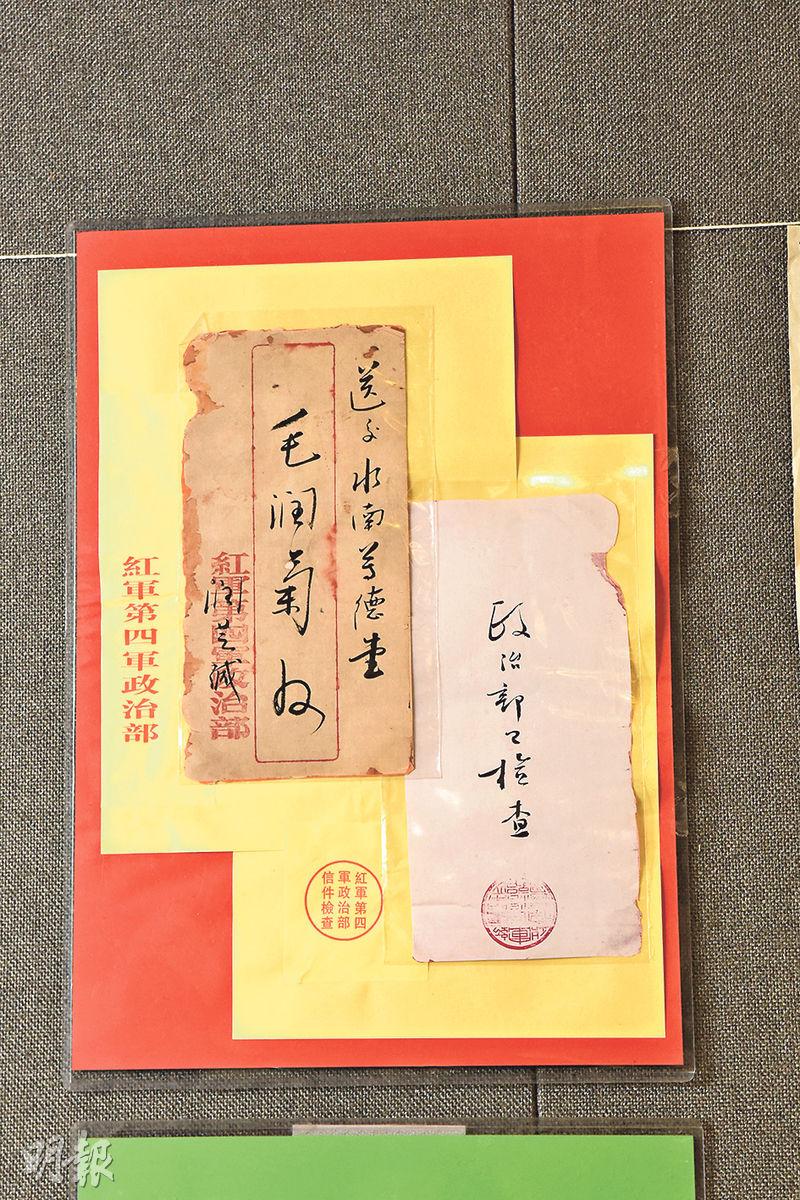 送交水南德堂
毛润菊收
润芝缄
紅軍第四軍政治部
紅軍第四軍政治部
政治部已检查
紅軍第四
軍政治部
信件檢查
明報